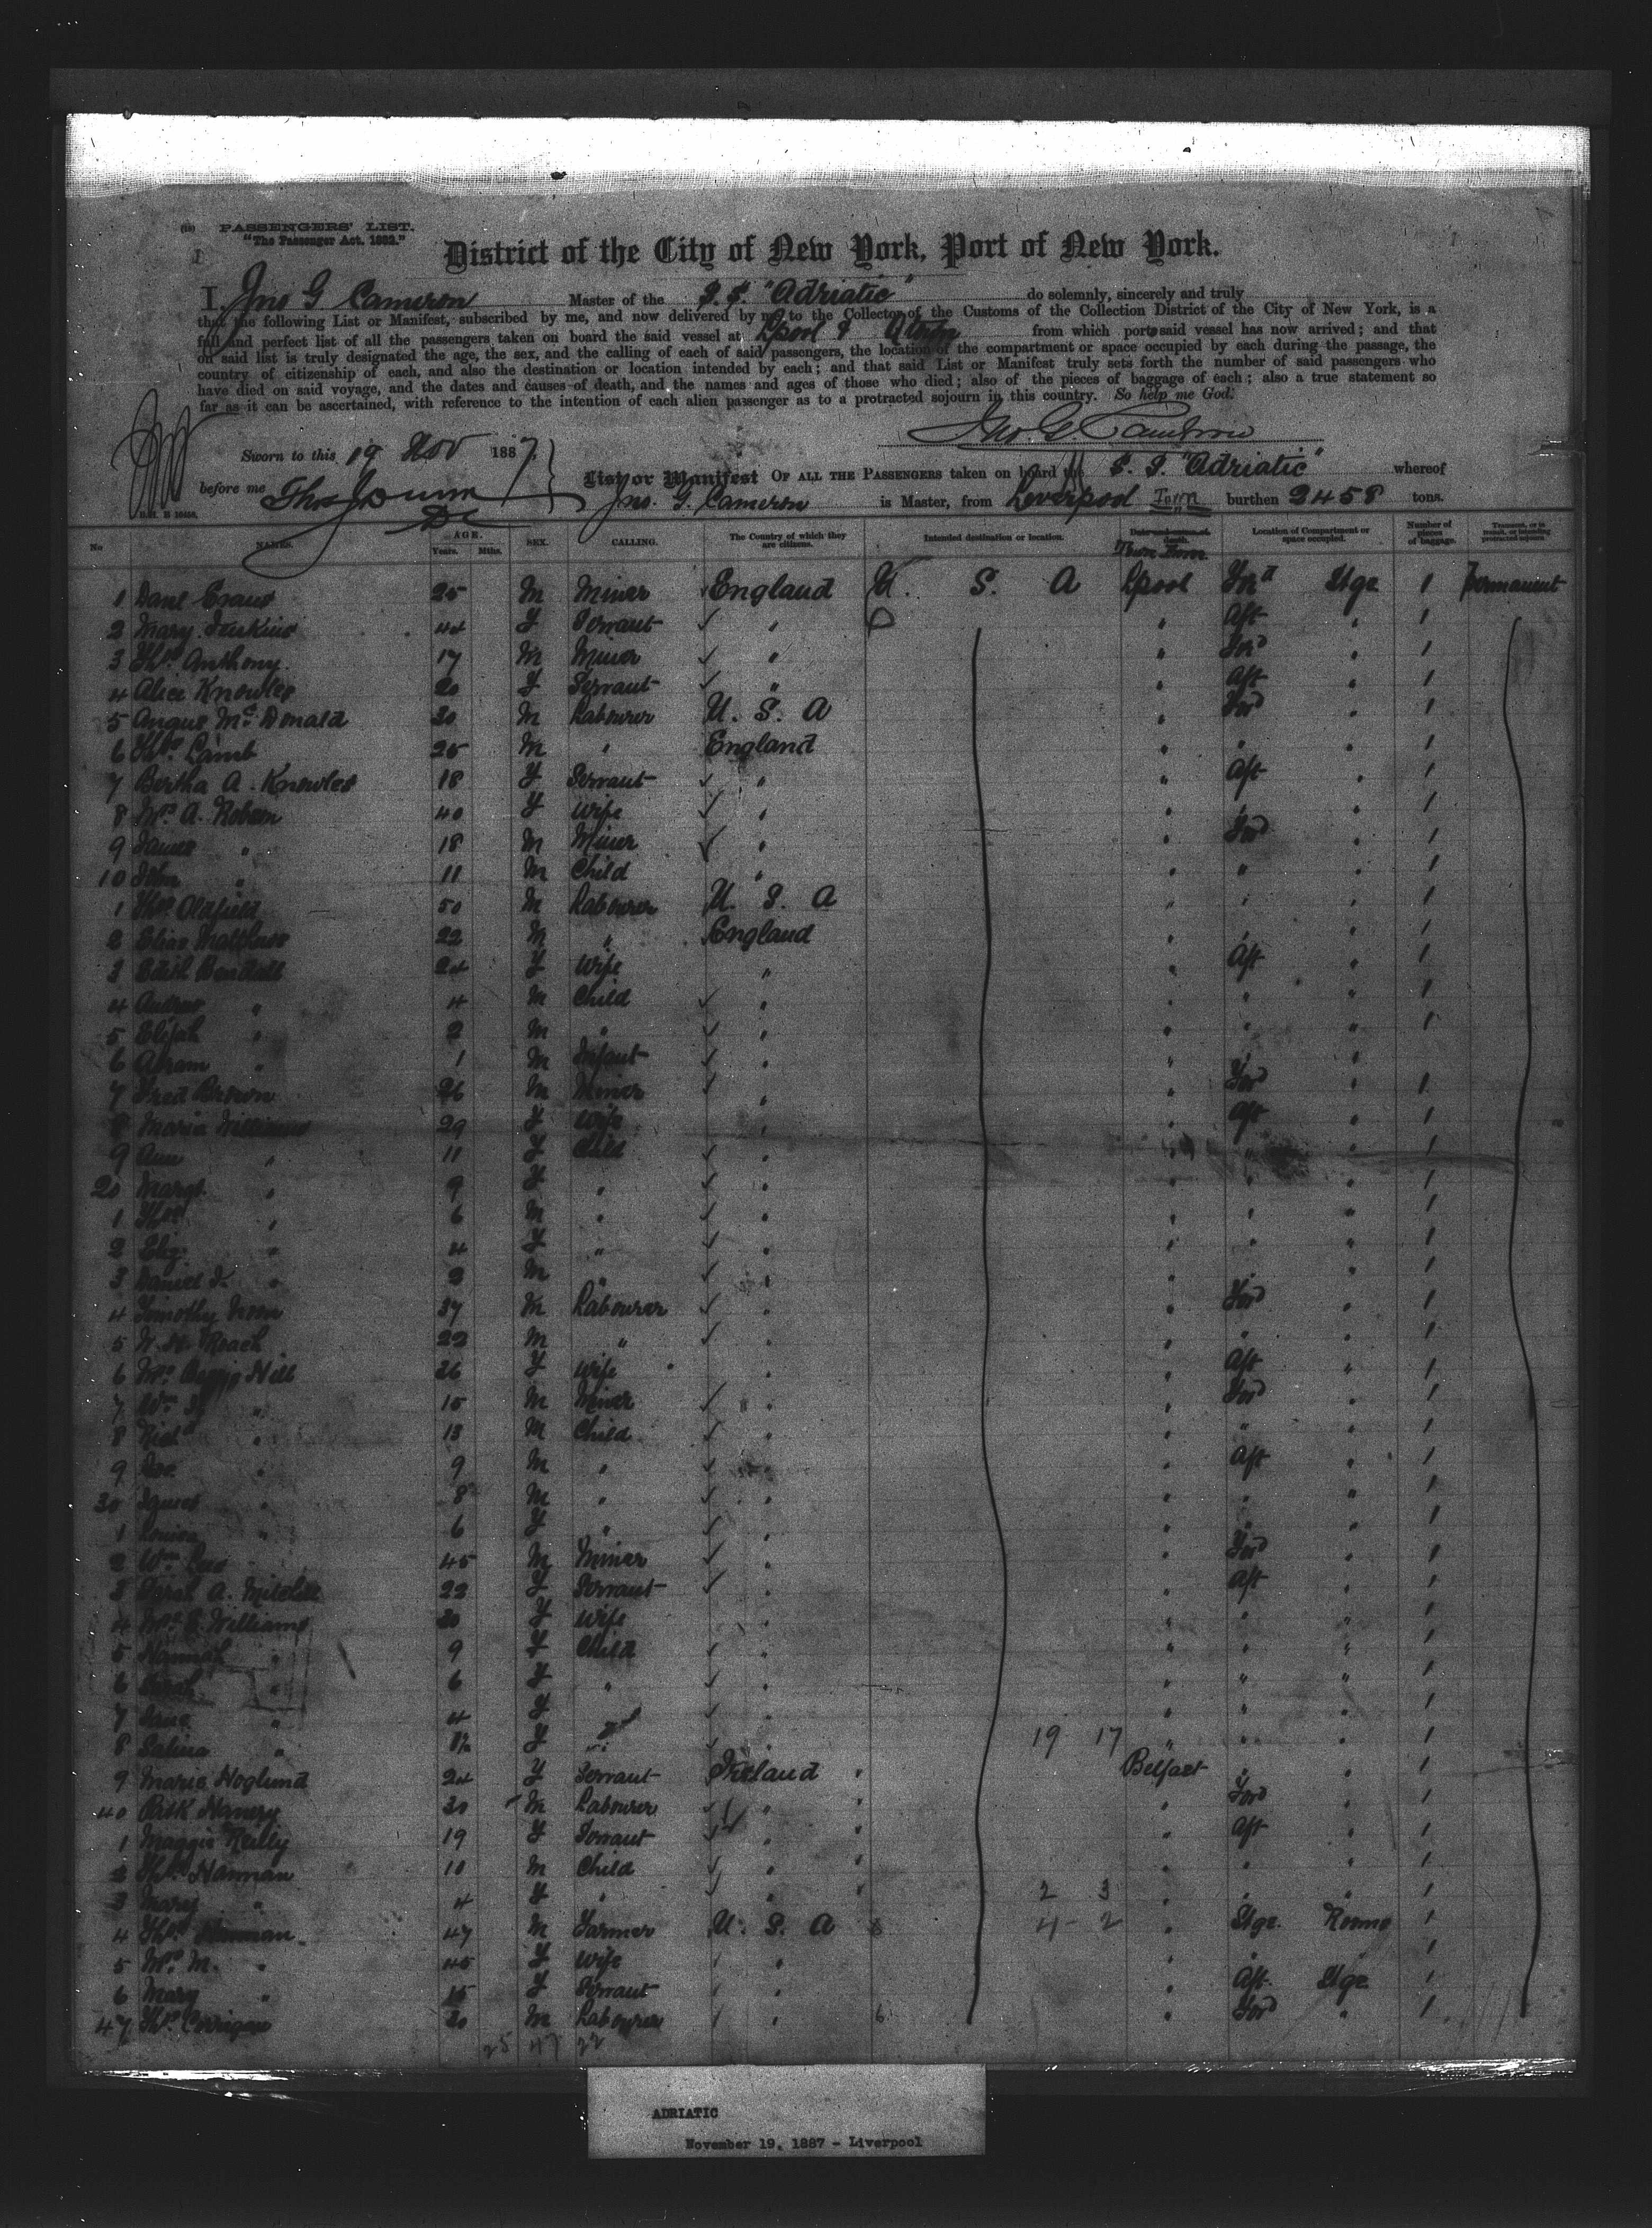 (10) PASSENGERS' LIST.
"The Passenger Act. 1882."
District of the City of New York, Port of New York.
I, Jno G Cameron Master of the S.S. "Adriatic" do solemnly, sincerely and truly
that the following List or Manifest, subscribed by me, and now delivered by me to the Collector of the Customs of the Collection District of the City of New York, is a
full and perfect list of all the passengers taken on board the said vessel at Lpool & from which ports said vessel has now arrived; and that
on said list is truly designated the age, the sex, and the calling of each of said passengers, the location of the compartment or space occupied by each during the passage, the
country of citizenship of each, and also the destination or location intended by each; and that said List or Manifest truly sets forth the number of said passengers who
have died on said voyage, and the dates and causes of death, and the names and ages of those who died; also of the pieces of baggage of each; also a true statement so
far as it can be ascertained, with reference to the intention of each alien passenger as to a protracted sojourn in this country. So help me God.
Jno. G. Cameron
Sworn to this 19 Nov 1887,
before me
List or Manifest OF ALL THE PASSENGERS taken on board the S.S. "Adriatic" whereof
Jno. G. Cameron is Master, from Liverpool burthen 2458 tons.
No NAMES. AGE. Years. Mths. SEX. CALLING. The Country of which they are citizens. Intended destination or location. Location of Compartment or space occupied. Number of pieces of baggage.
1 Danl Evans 25 M Miner England U. S. A Lpool Ford Stge 1 Permanent
2 Mary Jenkins 44 F Servant " " Aft " 1
3 Thos Anthony 17 M Miner " " Ford " 1
4 Alice Knowles 20 F Servant " " Aft " 1
5 Angus McDonald 30 M Labourer U. S. A " Ford " 1
6 Thos Lamb 25 M " England " " " 1
7 Bertha A. Knowles 18 F Servant " " Aft " 1
8 Mrs A. Robson 40 F Wife " " " " 1
9 James " 18 M Miner " " Ford " 1
10 John " 11 M Child " " " " 1
1 Thos Oldfield 50 M Labourer U. S. A " " " 1
2 Elias Matthews 22 M " England " " " 1
3 Edith 24 F Wife " " Aft " 1
4 Andrew " 4 M Child " " " " 1
5 Elijah " 2 M " " " " " 1
6 Abram " 1 M Infant " " " "
7 Fred Brown 26 M Miner " " Ford " 1
8 Maria Williams 29 F Wife " " Aft " 1
9 Ann " 11 F Child " " " " 1
20 Margt " 9 F " " " " " 1
1 Thos " 6 M " " " " " 1
2 Eliz. " 4 F " " " " " 1
3 Daniel J. " 2 M " " " " " 1
4 Timothy Noon 37 M Labourer " " Ford " 1
5 W. H. Roach 22 M " " " " " 1
6 Mrs Hill 36 F Wife " " Aft " 1
7 Wm " 15 M Miner " " Ford " 1
8 Richd " 13 M Child " " " " 1
9 " 9 M " " " Aft " 1
30 " 8 M " " " " " 1
1 Louisa " 6 F " " " " " 1
2 Wm 45 M Miner " " Ford " 1
3 Sarah A. Mitchell 22 F Servant " " Aft " 1
4 Mrs Williams 30 F Wife " " " " 1
5 Hannah " 9 F Child " " " " 1
6 Sarah " 6 F " " " " " 1
7 Jane " 4 F " " " " " 1
8 Salina " F " " 19 17 " " " 1
9 Marie Hoglund 24 F Servant Ireland Belfast " " 1
40 Patk 30 M Labourer " " Ford " 1
1 Maggie Reilly 19 F Servant " " Aft " 1
2 Thos Hannan 10 M Child " " " " 1
3 Mary " 4 F " " 2 3 " " " 1
4 Thos 47 M Farmer U. S. A 4 2 " Stge. Rooms 1
5 Mrs M. " 45 F Wife " " " 1
6 Mary " 15 F Servant " " Aft Stge 1
47 Thos Corrigan 20 M Labourer " " Ford " 1
25 47 22
ADRIATIC
November 19, 1887 - Liverpool